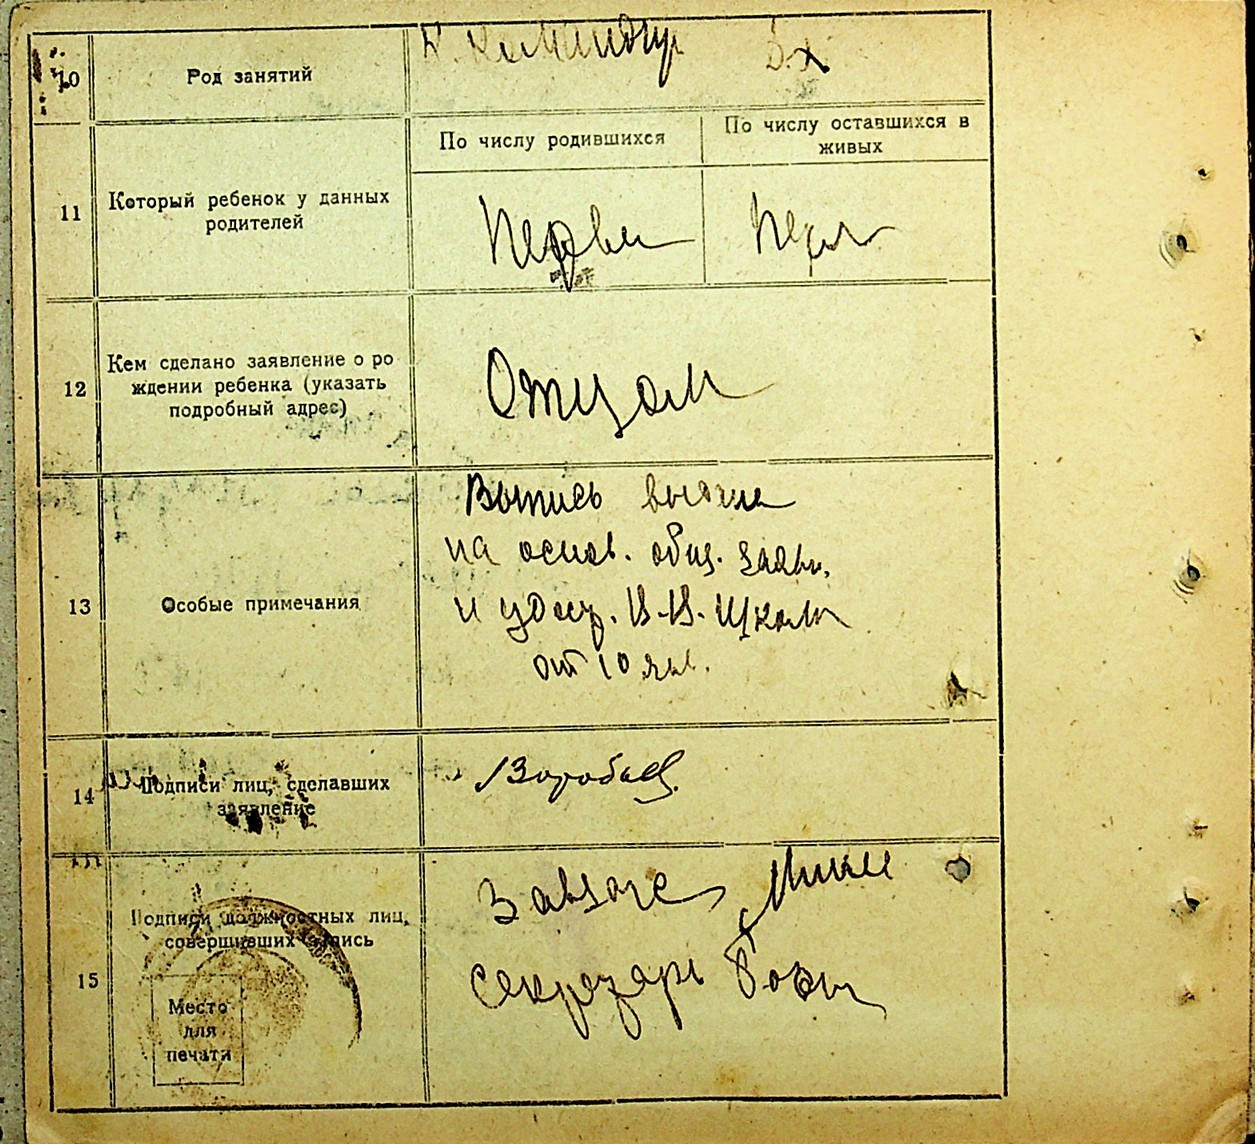 10 Род занятий К. Командир Д.Х
По числу родившихся По числу оставшихся в
живых
11 Который ребенок у данных
родителей
Первы Перв
12 Кем сделано заявление о ро
ждении ребенка (указать
подробный адрес)
Отцом
13 Особые примечания
Выпись
на основ. общ. заявл.
и удост. В.-В. Школы
от 10 янв.
14 Подписи лиц, сделавших
заявление
15 Подписи должностных лиц,
совершивших запись
Завзагс
секретарь
Место
для
печати